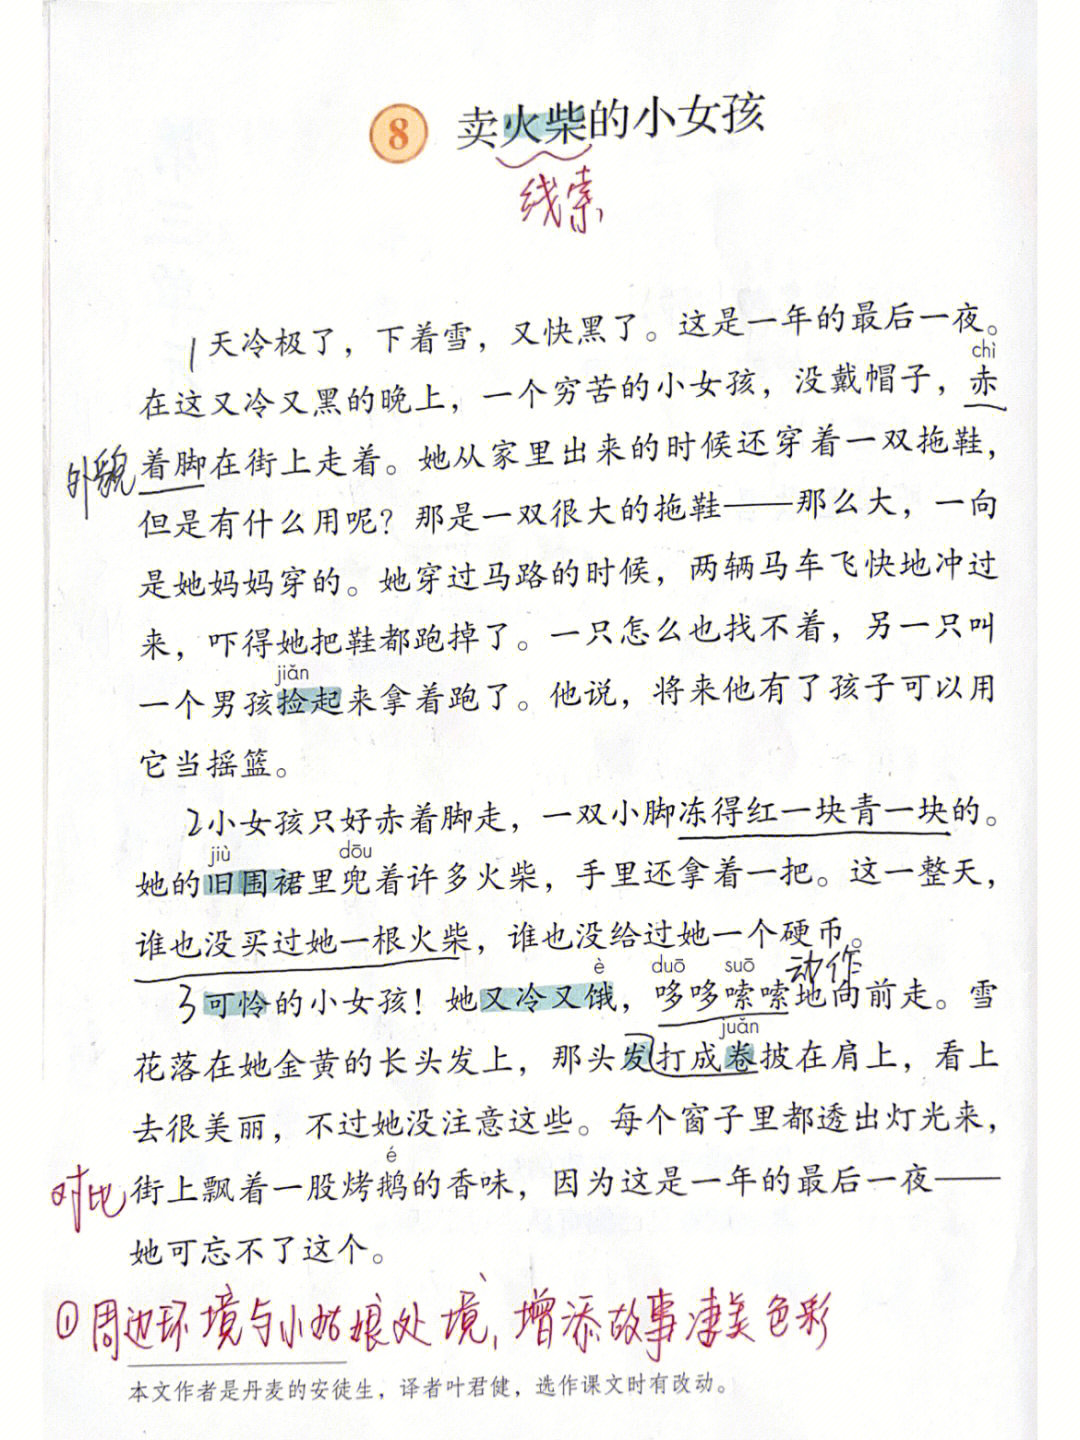 8 卖火柴的小女孩
线索
1天冷极了，下着雪，又快黑了。这是一年的最后一夜。
chì
在这又冷又黑的晚上，一个穷苦的小女孩，没戴帽子，赤
外貌 着脚在街上走着。她从家里出来的时候还穿着一双拖鞋，
但是有什么用呢？那是一双很大的拖鞋——那么大，一向
是她妈妈穿的。她穿过马路的时候，两辆马车飞快地冲过
来，吓得她把鞋都跑掉了。一只怎么也找不着，另一只叫
jiǎn
一个男孩捡起来拿着跑了。他说，将来他有了孩子可以用
它当摇篮。
2小女孩只好赤着脚走，一双小脚冻得红一块青一块的。
jiù dōu
她的旧围裙里兜着许多火柴，手里还拿着一把。这一整天，
谁也没买过她一根火柴，谁也没给过她一个硬币。
动作
è duō suō
3可怜的小女孩！她又冷又饿，哆哆嗦嗦地向前走。雪
juǎn
花落在她金黄的长头发上，那头发打成卷披在肩上，看上
去很美丽，不过她没注意这些。每个窗子里都透出灯光来，
é
对比 街上飘着一股烤鹅的香味，因为这是一年的最后一夜——
她可忘不了这个。
①周边环境与小姑娘处境，增添故事凄美色彩
本文作者是丹麦的安徒生，译者叶君健，选作课文时有改动。